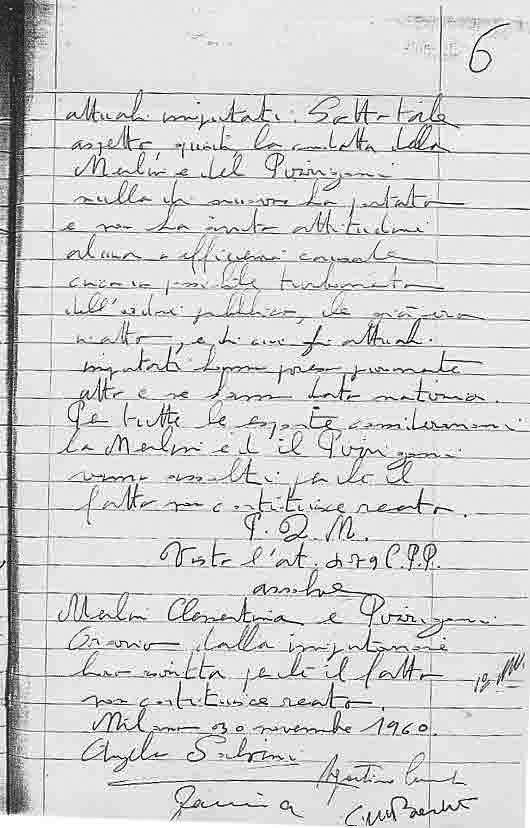 6
attuali imputati. Sotto tale
aspetto, quindi la condotta della
Merlini e del Pozzigoni
nulla di nuovo ha portato
e non ha avuto attitudini
alcuna a efficienza causale
circa un possibile turbamento
dell'ordine pubblico, che già era
in atto, e di cui gli attuali
imputati hanno preso
atto e ne hanno dato notizia.
Per tutte le esposte considerazioni
la Merlini ed il
vanno assolti perché il
fatto non costituisce reato.
P. Q. M.
Visto l'art. 479 C.P.P.
assolve
Merlini Clementina e
dalla imputazione
loro ascritta perché il fatto
non costituisce reato.
Milano 30 novembre 1960.
Angelo Salvini